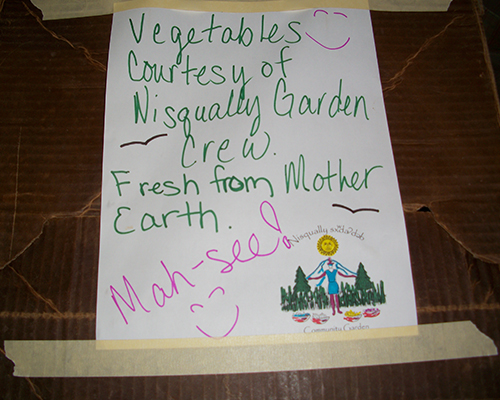 Vegetables
Courtesy of
Nisqually Garden
Crew.
Fresh from Mother
Earth.
Mah-see!
Nisqually
Community Garden